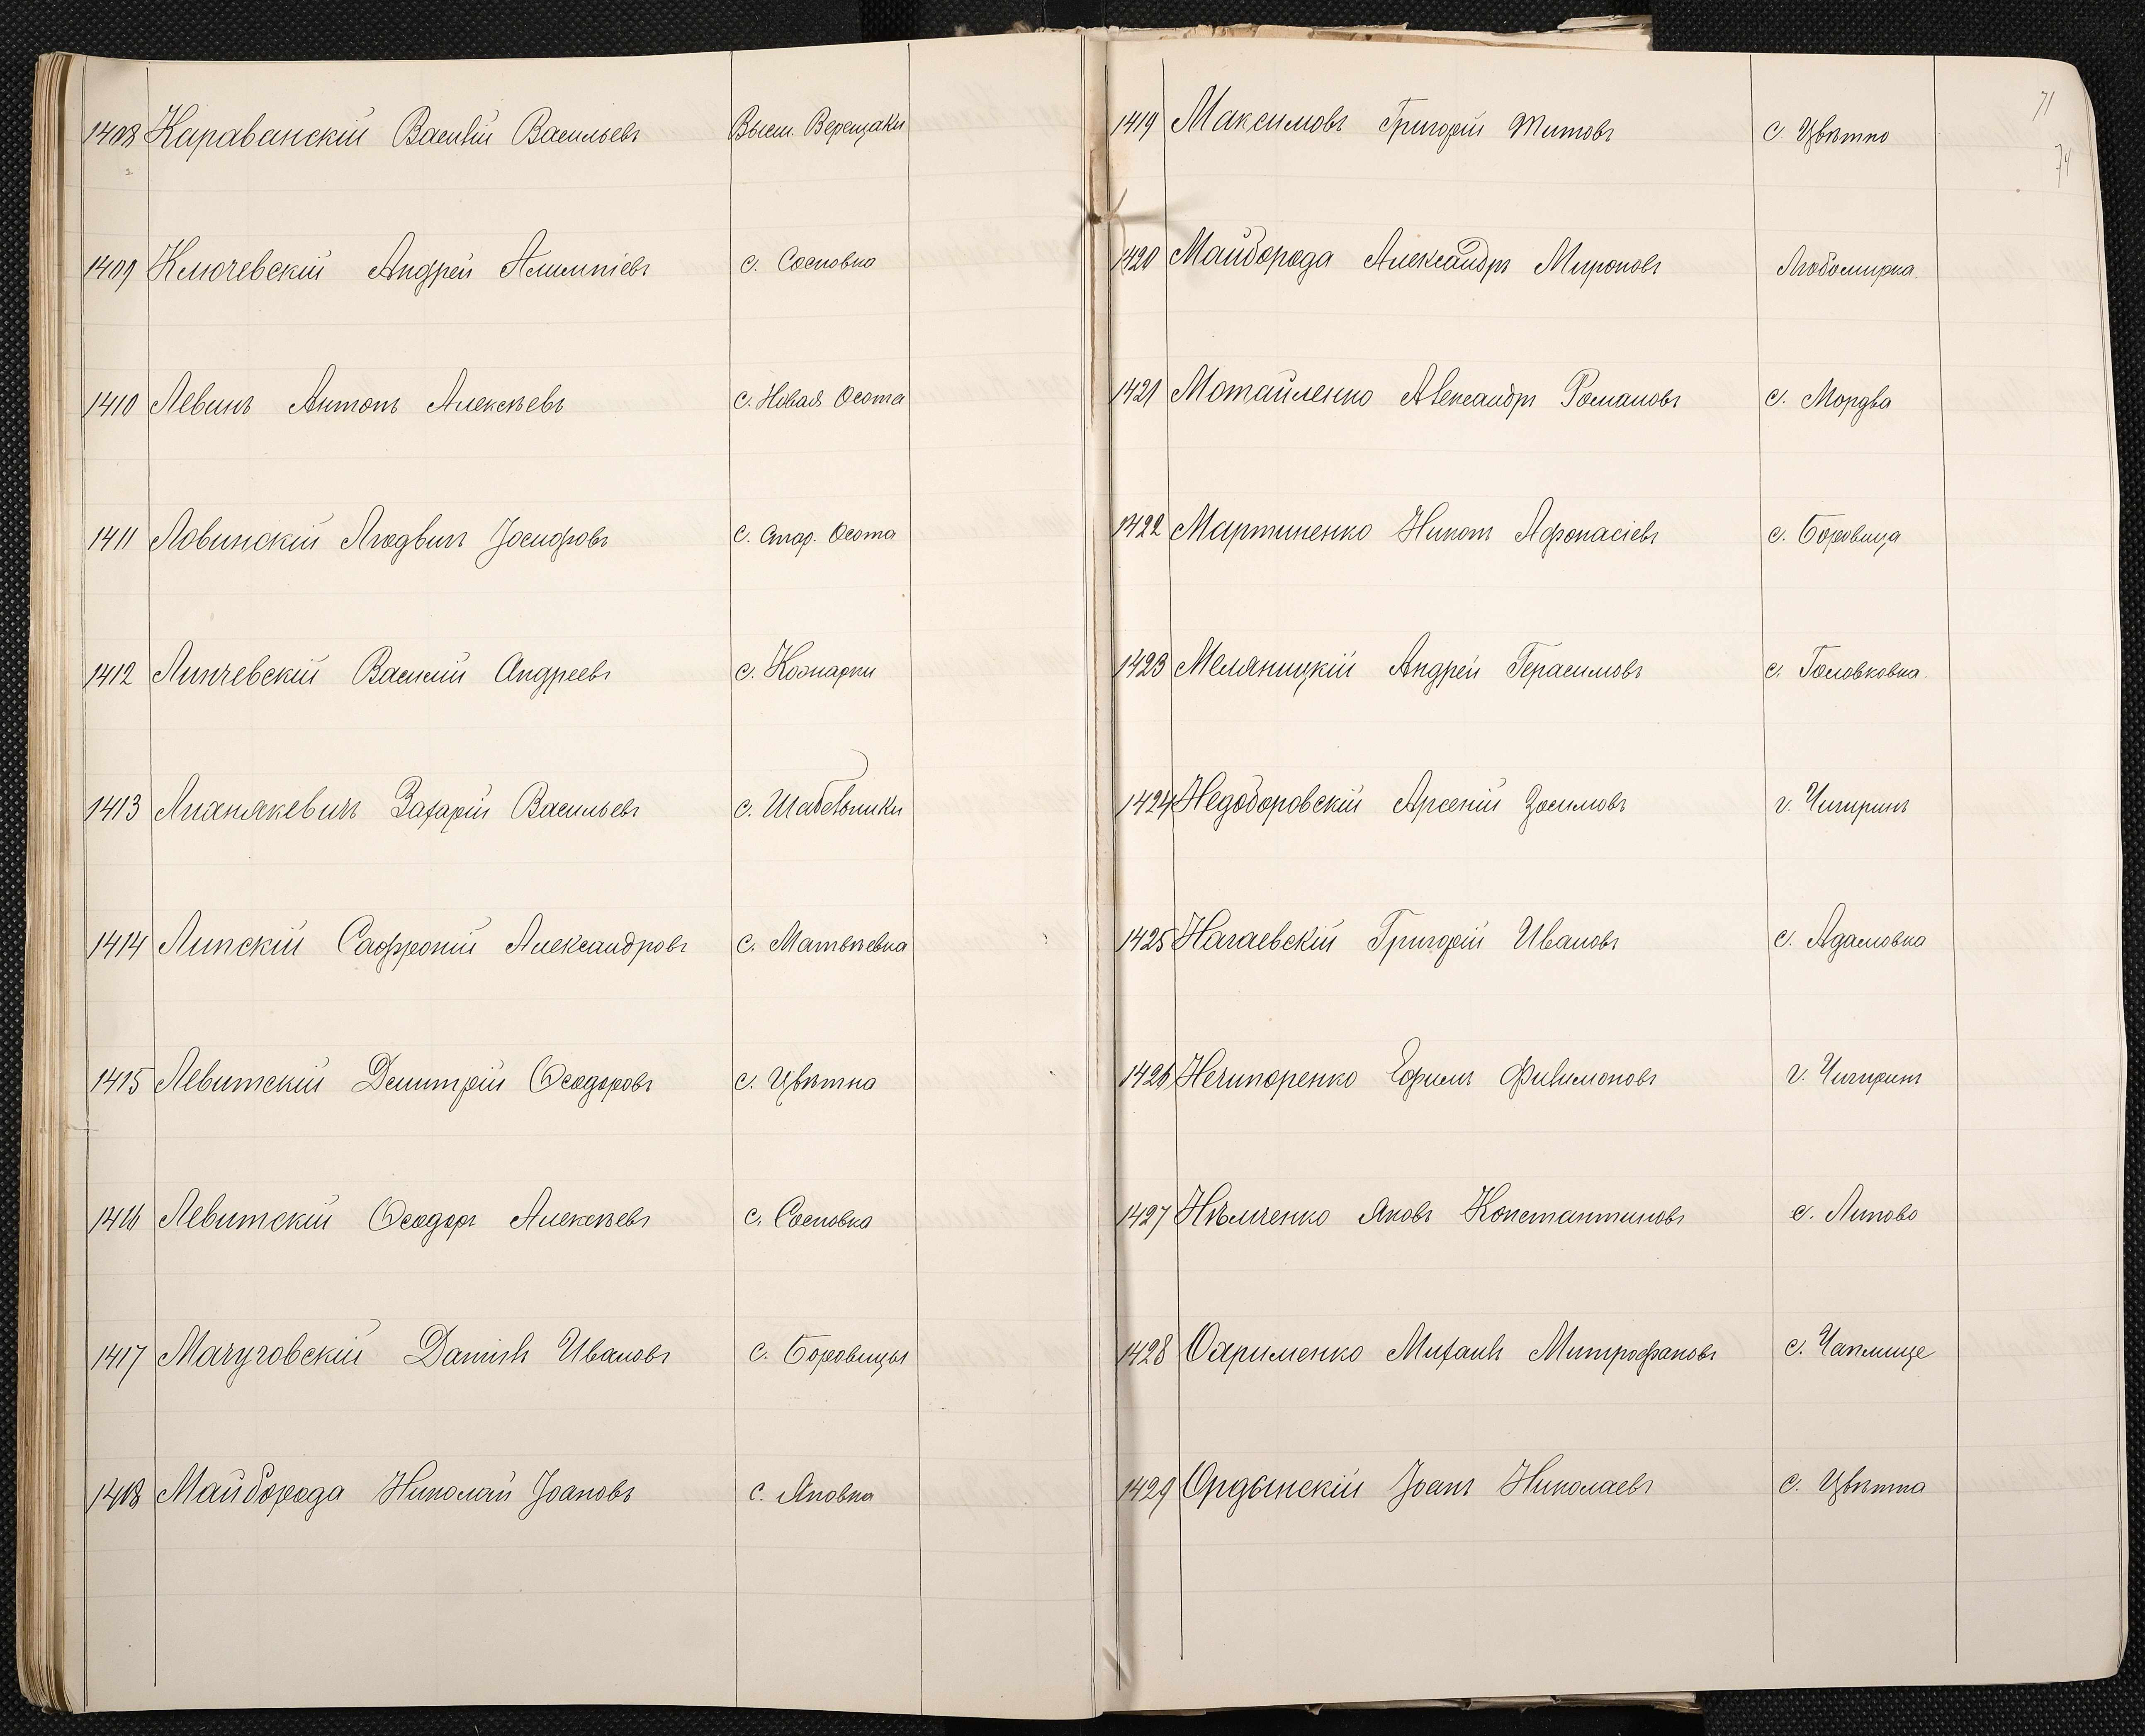 1408 Караванскій Василій Васильевъ Высш. Верещаки
1409 Ключевскій Андрей Алимпіевъ с. Сосновка
1410 Левинъ Антонъ Алексѣевъ с. Новая Осота
1411 Ловинскій Людвигъ Іосифовъ с. Стар. Осота
1412 Липчевскій Василій Андреевъ с. Кожарки
1413 Захарій Васильевъ с. Шабельники
1414 Липскій Сафроній Александровъ с. Матвѣевка
1415 Левитскій Димитрій Ѳеодоровъ с. Цвѣтна
1416 Левитскій Ѳеодоръ Алексѣевъ с. Сосновка
1417 Мачуговскій Даніилъ Ивановъ с. Боровицы
1418 Майборода Николай Іоановъ с. Яновка
71
74
1419 Максимовъ Григорій Титовъ с. Цвѣтно
1420 Майборода Александръ Мироновъ Любомирка.
1421 Мотайленко Александръ Романовъ с. Мордва
1422 Мартиненко Никонъ Афонасіевъ с. Боровица
1423 Меляницкій Андрей Герасимовъ с. Головковка.
1424 Недоборовскій Арсеній Зосимовъ г. Чигиринъ
1425 Нагаевскій Григорій Ивановъ с. Адамовка
1426 Нечипоренко Ефимъ Филимоновъ г. Чигиринъ
1427 Нѣмченко Яковъ Константиновъ с. Липово
1428 Охрименко Михаилъ Митрофановъ с. Чаплище
1429 Ордынскій Іоанъ Николаевъ с. Цвѣтна